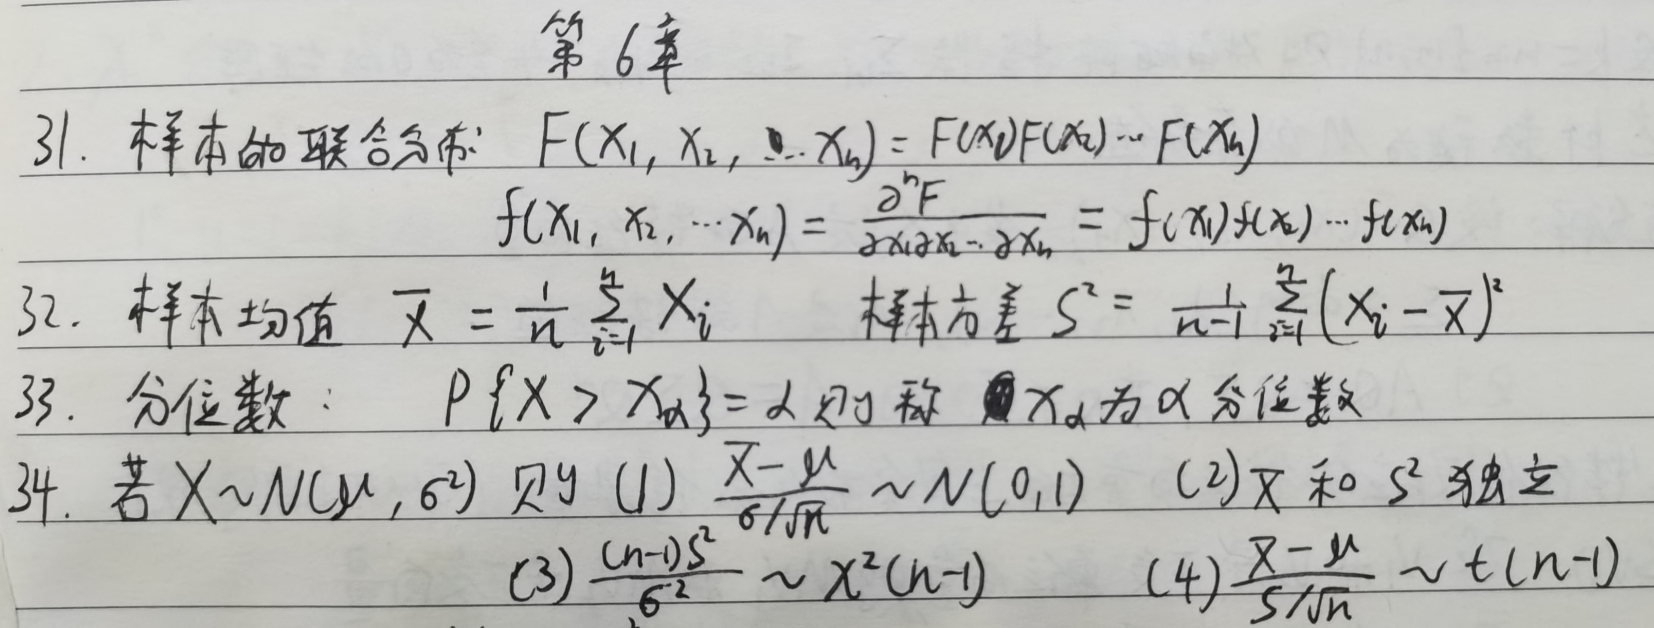 第6章
31. 样本的联合分布: F(X₁, X₂, … Xₙ) = F(X₁)F(X₂)…F(Xₙ)
f(x₁, x₂, …xₙ) = ∂ⁿF/∂x₁∂x₂…∂xₙ = f(x₁)f(x₂)…f(xₙ)
32. 样本均值 X̄ = 1/n ∑ⁿᵢ₌₁ Xᵢ 样本方差 S² = 1/(n-1) ∑ⁿᵢ₌₁ (Xᵢ - X̄)²
33. 分位数: P{X > X_α} = α 则称 X_α 为 α 分位数
34. 若 X~N(μ, σ²) 则 (1) (X̄-μ)/(σ/√n) ~ N(0,1) (2) X̄ 和 S² 独立
(3) (n-1)S²/σ² ~ χ²(n-1) (4) (X̄-μ)/(S/√n) ~ t(n-1)